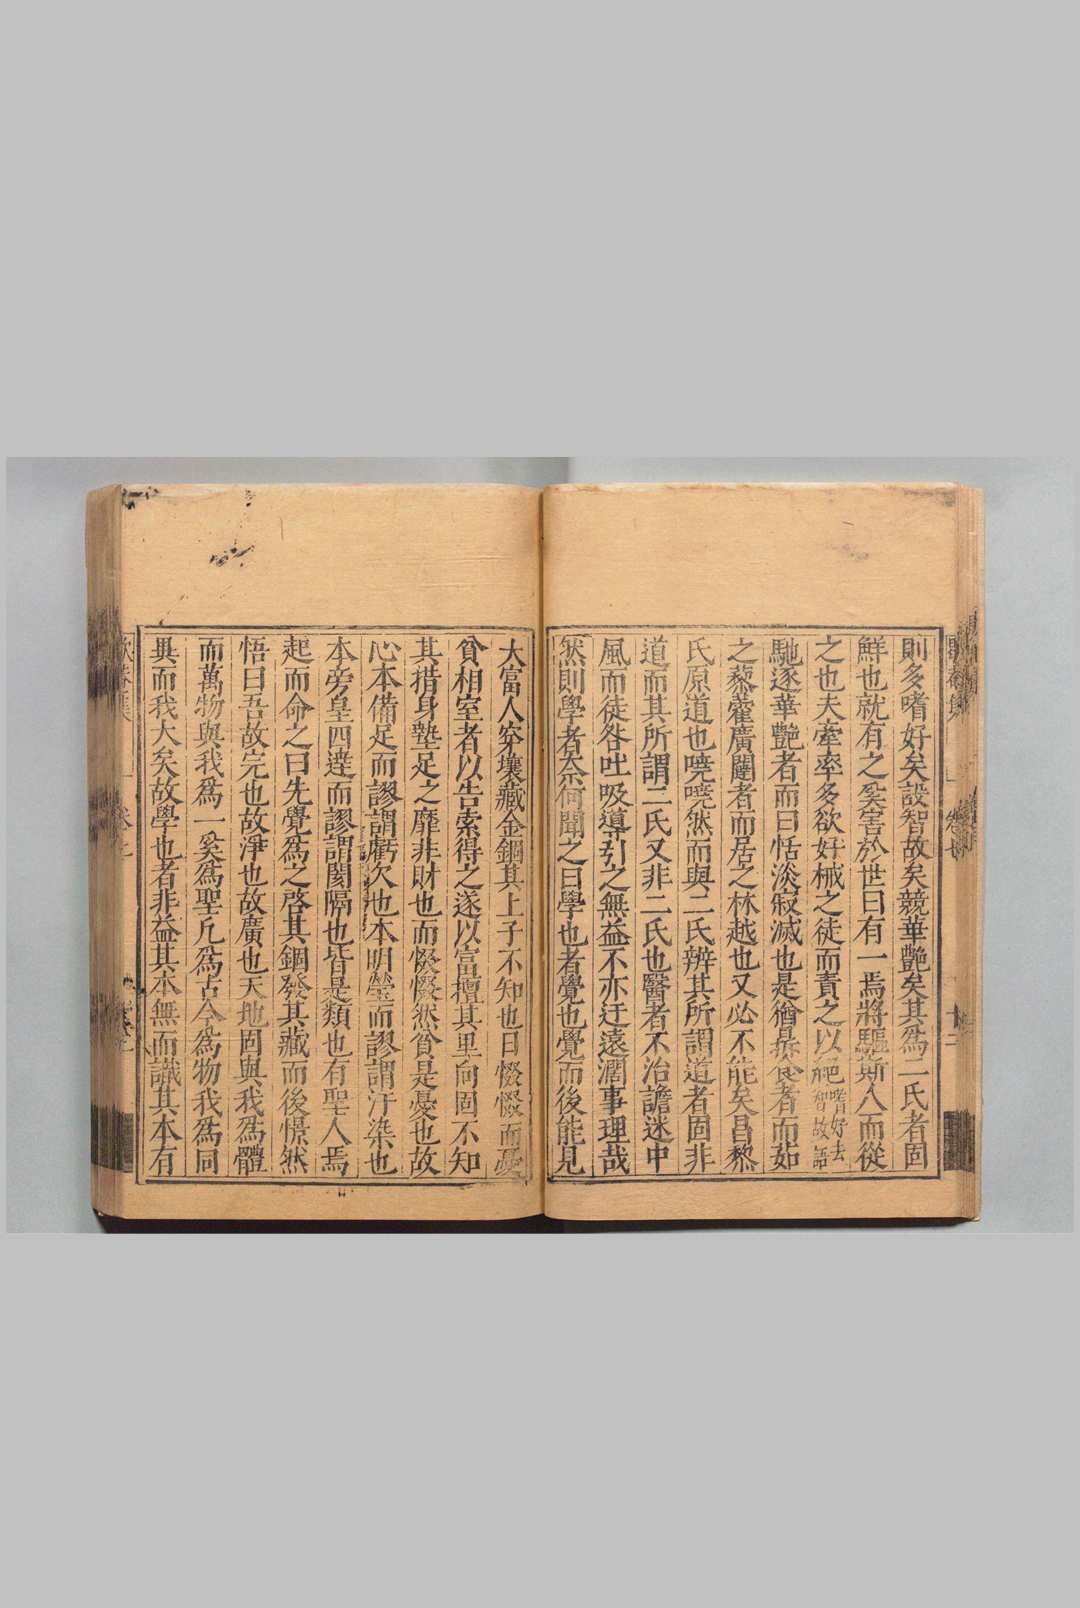 則多嗜好矣設智故矣競華艷矣其爲一氏者固
鮮也就有之奚害於世曰有一焉將驅斯人而從
之也夫牽率多欲好械之徒而責之以絕嗜好去智故語
馳逐華艷者而曰恬淡寂滅也是猶
之藜藿廣闥者而居之林越也又必不能矣昌黎
氏原道也嘵嘵然而與二氏辨其所謂道者固非
道而其所謂二氏又非二氏也醫者不治譫迷中
風而徒咎吐吸導引之無益不亦迂遠濶事理哉
然則學者柰何聞之曰學也者覺也覺而後能見
大富人穿壤藏金錮其上子不知也日惙惙而憂
貧相室者以告索得之遂以富擅其里向固不知
其措身墊足之靡非財也而惙惙然貧是憂也故
心本備足而謬謂虧欠也本明瑩而謬謂汙染也
本旁皇四達而謬謂閡隔也皆是類也有聖人焉
起而命之曰先覺爲之啓其錮發其藏而後憬然
悟曰吾故完也故淨也故廣也天地固與我爲體
而萬物與我爲一奚爲聖凡爲古今爲物我爲同
異而我大矣故學也者非益其本無而識其本有